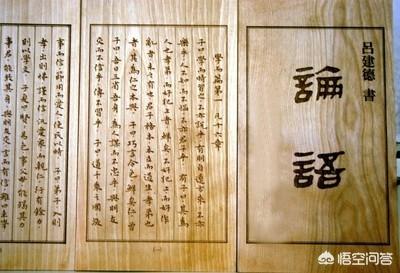 呂建德 書
論語
學而篇第一 凡十六章
子曰學而時習之不亦說乎有朋自遠方來不亦
樂乎人不知而不慍不亦君子乎 有子曰其為
人也孝弟而好犯上者鮮矣不好犯上而好作
亂者未之有也君子務本本立而道生孝弟也
者其為仁之本與 子曰巧言令色鮮矣仁 曾
子曰吾日三省吾身為人謀而不忠乎與朋友
交而不信乎傳不習乎 子曰道千乘之國敬
(一)
事而信節用而愛人使民以時 子曰弟子入則
孝出則悌謹而信汎愛眾而親仁行有餘力
則以學文 子夏曰賢賢易色事父母能竭其力
事君能致其身與朋友交言而有信雖曰未學
悟空问答